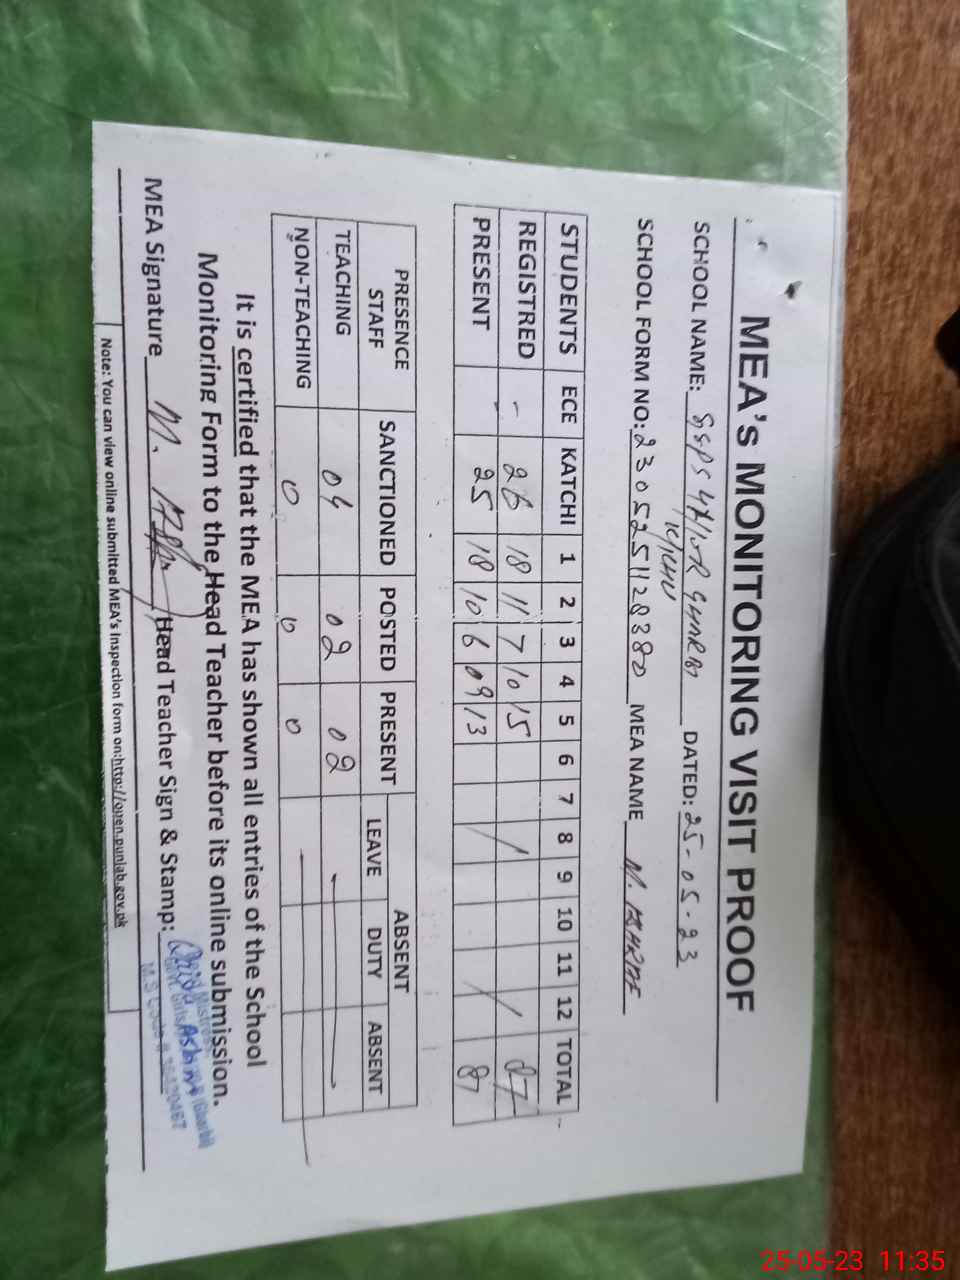 MEA's MONITORING VISIT PROOF
SCHOOL NAME: GGPS 47/10R GHARBI DATED: 25-05-23
SCHOOL FORM NO: 2305251128380 MEA NAME M. ASHRAF
STUDENTS ECE KATCHI 1 2 3 4 5 6 7 8 9 10 11 12 TOTAL
REGISTRED - 26 18 11 7 10 15 / / 87
PRESENT - 25 18 10 6 09 13
PRESENCE STAFF SANCTIONED POSTED PRESENT ABSENT
LEAVE DUTY ABSENT
TEACHING 04 02 02
NON-TEACHING 0 0 0
It is certified that the MEA has shown all entries of the School
Monitoring Form to the Head Teacher before its online submission.
MEA Signature Head Teacher Sign & Stamp:
Note: You can view online submitted MEA's Inspection form on:http://open.punjab.gov.pk
25-05-23 11:35